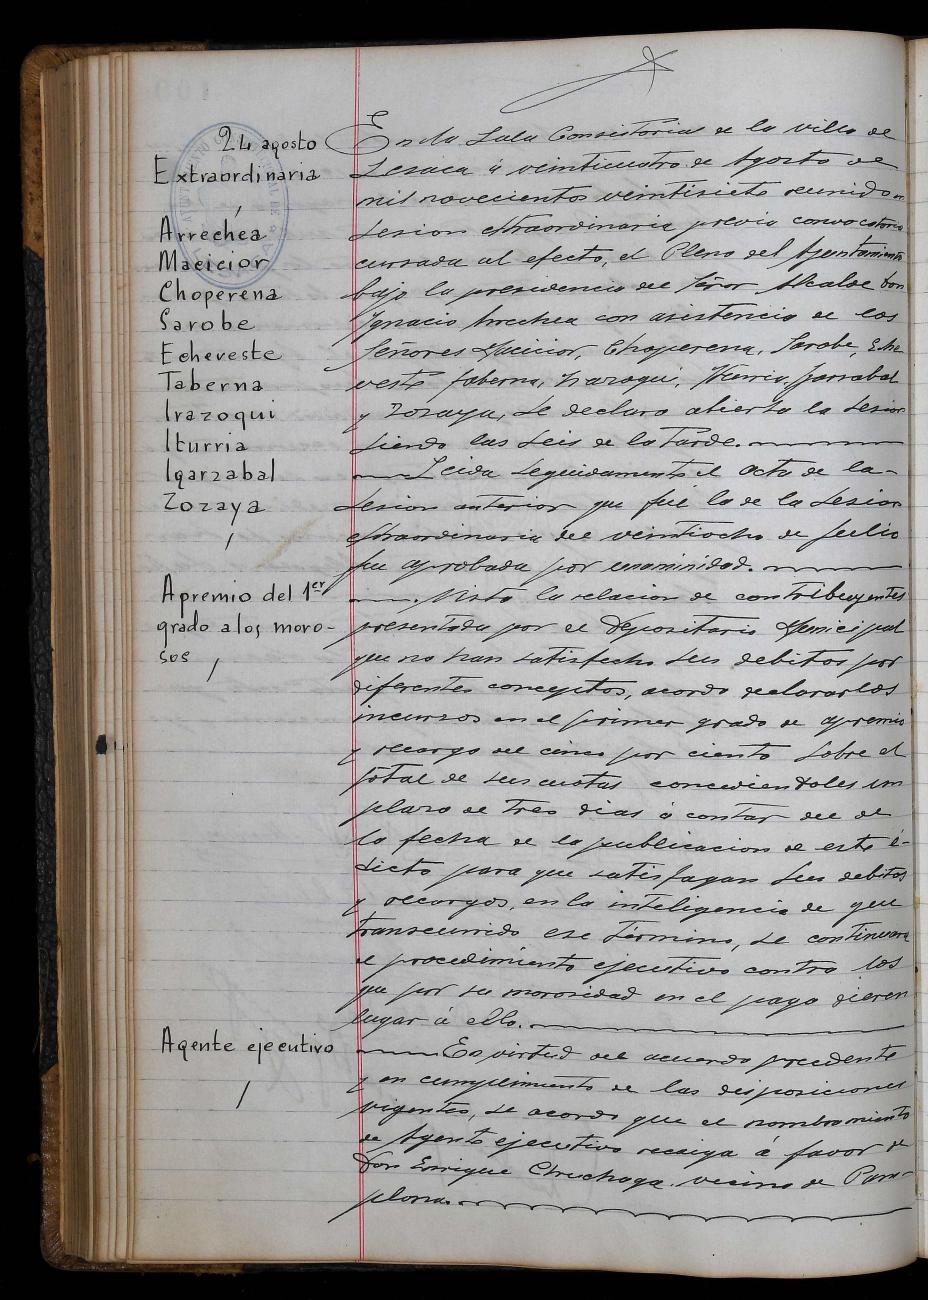 24 agosto
Extraordinaria
Arrechea
Macicior
Choperena
Sarobe
Echeveste
Taberna
Irazoqui
Iturria
Igarzabal
Zozaya
Apremio del 1er
grado a los moro-
sos
Agente ejecutivo
En la Sala Consistorial de la villa de
Lesaca á veinticuatro de Agosto de
mil novecientos veintisiete reunido en
sesion extraordinaria previa convocatoria
cursada al efecto, el Pleno del Ayuntamiento
bajo la presidencia del Señor Alcalde Don
Ignacio Arrechea con asistencia de los
Señores Macicior, Choperena, Sarobe, Eche
veste Taberna, Irazoqui, Iturria, Igarzabal
y Zozaya, se declara abierta la sesion
siendo las seis de la tarde.
Leida seguidamente el acta de la-
sesion anterior que fué la de la sesion
extraordinaria del veintiocho de Julio
fue aprobada por unanimidad.
Vista la relacion de contribuyentes
presentada por el Depositario Municipal
que no han satisfecho sus debitos por
diferentes conceptos, acordo declararlos
incursos en el primer grado de apremio
y recargo del cinco por ciento sobre el
total de sus cuotas concediendoles un
plazo de tres dias á contar des de
la fecha de la publicacion de este é-
dicto para que satisfagan sus debitos
y recargos, en la inteligencia de que
transcurrido ese término, se continuara
el procedimiento ejecutivo contra los
que por su morosidad en el pago dieren
lugar á ello.
En virtud del acuerdo precedente
y en cumplimiento de las disposiciones
vigentes, se acordo que el nombramiento
de Agente ejecutivo recaiga á favor de
Don Enrique Chuchaga vecino de Pam-
plona.